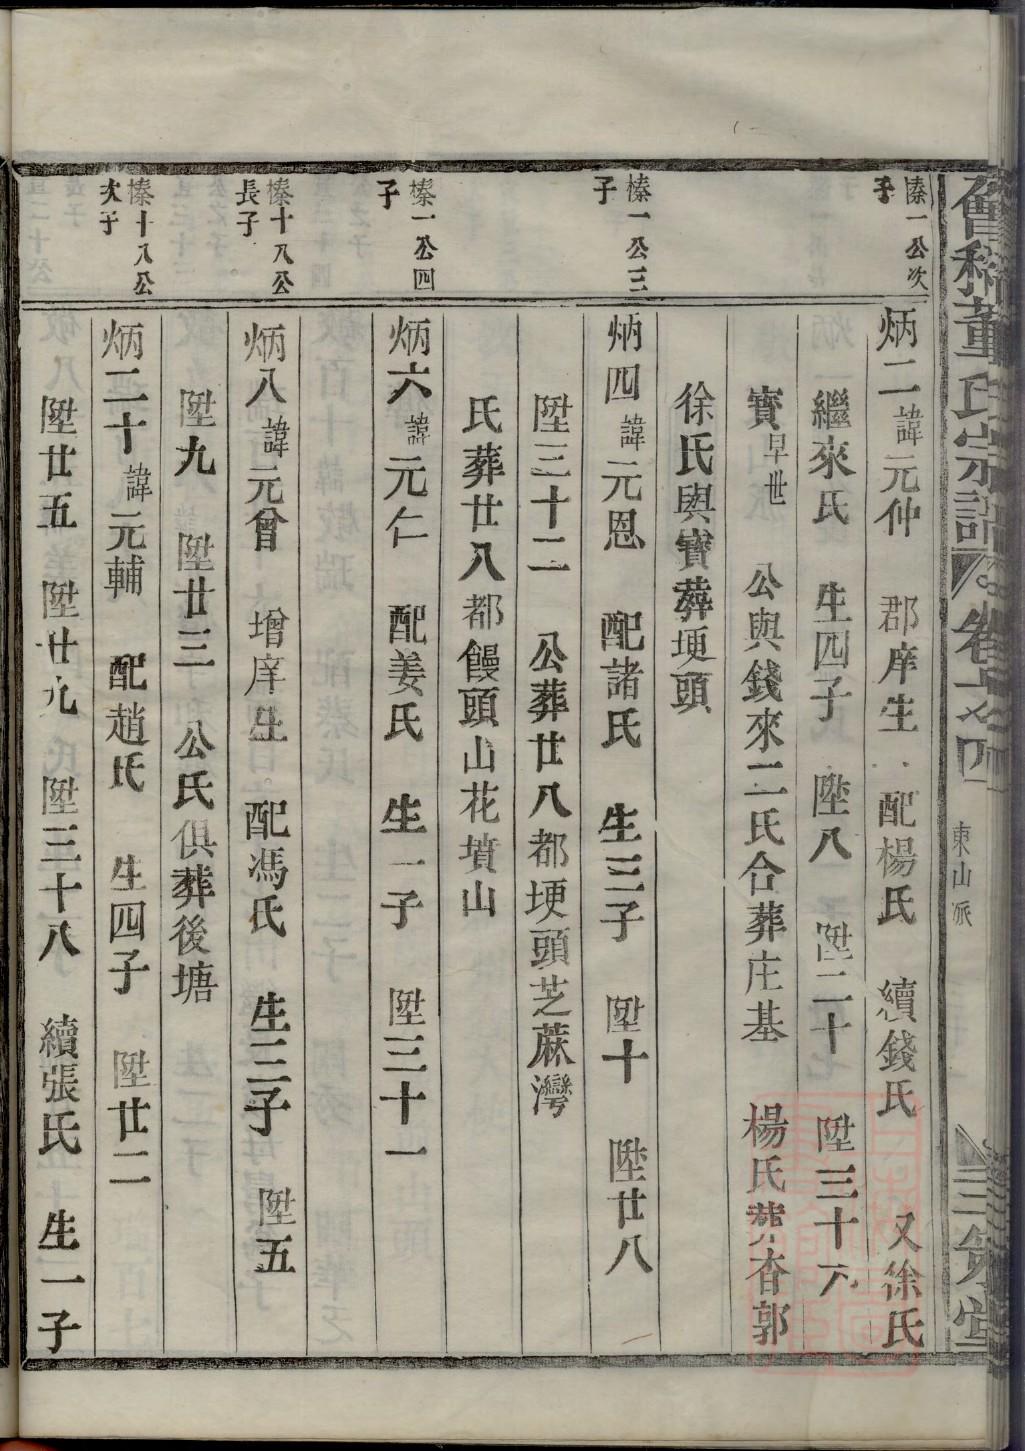 董氏宗譜 卷 四 東山派 三 堂
榛一公次
子
炳二諱元仲 郡庠生 配楊氏 續錢氏 又徐氏
繼來氏 生四子 陞八 陞二十 陞三十六
寶早世 公與錢來二氏合葬庄基 楊氏葬杳郭
徐氏與寶葬埂頭
榛一公三
子
炳四諱元恩 配諸氏 生三子 陞十 陞廿八
陞三十二 公葬廿八都埂頭芝蔴灣
氏葬廿八都饅頭山花墳山
榛一公四
子
炳六諱元仁 配姜氏 生一子 陞三十一
榛十八公
長子
炳八諱元曾 增庠生 配馮氏 生三子 陞五
陞九 陞廿三 公氏俱葬後塘
榛十八公
次子
炳二十諱元輔 配趙氏 生四子 陞廿二
陞廿五 陞廿九 陞三十八 續張氏 生一子